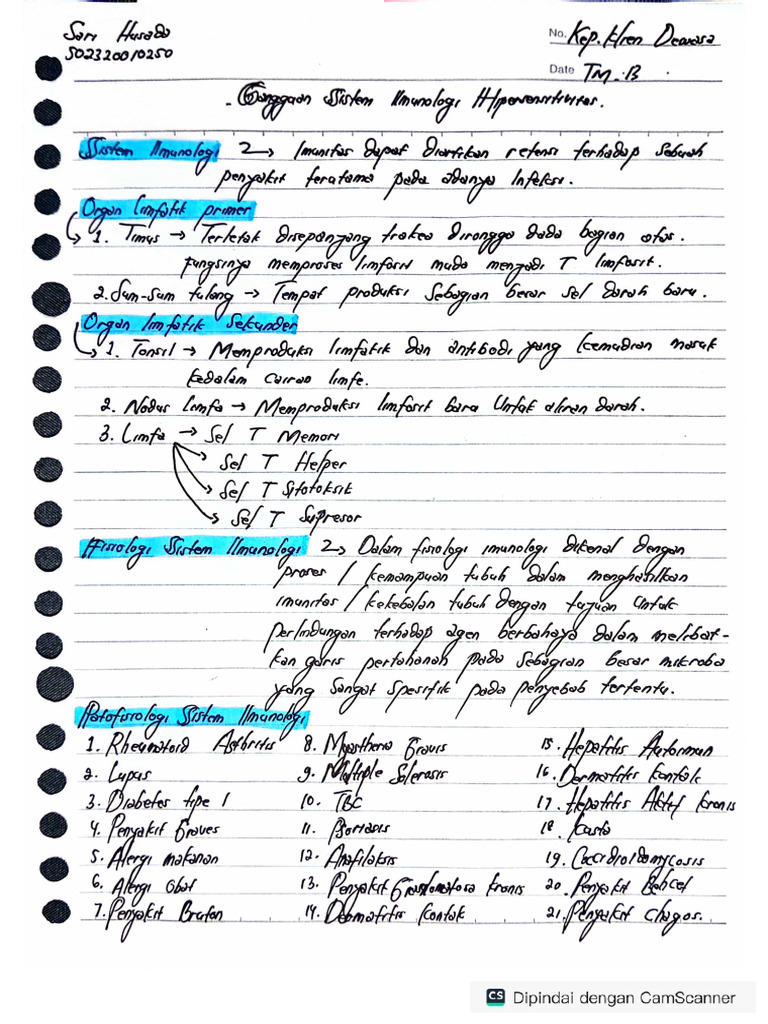 Sari Husada
502320010250
No. Kep. Hren Dewasa
Date TM. 13
- Gangguan Sistem Imunologi Hipersensitivitas.
Sistem Imunologi 2 → Imunitas dapat diartikan retensi terhadap sebuah
penyakit terutama pada adanya Infeksi.
Organ limfatik primer
1. Timus → Terletak disepanjang trakea dirongga dada bagian atas.
fungsinya memproses limfosit muda menjadi T limfosit.
2. Sum-sum tulang → Tempat produksi sebagian besar sel darah baru.
Organ limfatik Sekunder
1. Tonsil → Memproduksi limfatik dan antibodi yang kemudian masuk
kedalam cairan limfe.
2. Nodus limfa → Memproduksi limfosit baru untuk aliran darah.
3. Limfa → Sel T Memori
Sel T Helper
Sel T Sitotoksik
Sel T Supresor
Fisiologi Sistem Imunologi 2 → Dalam fisiologi imunologi dikenal dengan
proses / kemampuan tubuh dalam menghasilkan
imunitas / kekebalan tubuh dengan tujuan untuk
perlindungan terhadap agen berbahaya dalam melibat-
kan garis pertahanah pada sebagian besar mikroba
yang sangat spesifik pada penyebab tertentu.
Patofisiologi Sistem Imunologi
1. Rheumatoid Arthritis 8. Myasthena Gravis 15. Hepatitis Autoimun
2. Lupus 9. Multiple Sclerosis 16. Dermatitis kontak
3. Diabetes tipe 1 10. TBC 17. Hepatitis Aktif kronis
4. Penyakit Graves 11. Psoriasis 18. Kusta
5. Alergi makanan 12. Anafilaksis 19. Coccidioidomycosis
6. Alergi Obat 13. Penyakit Granlomatosa kronis 20. Penyakit Behcel
7. Penyakit Bruton 14. Dermatitis kontak 21. Penyakit chagos.
CS Dipindai dengan CamScanner